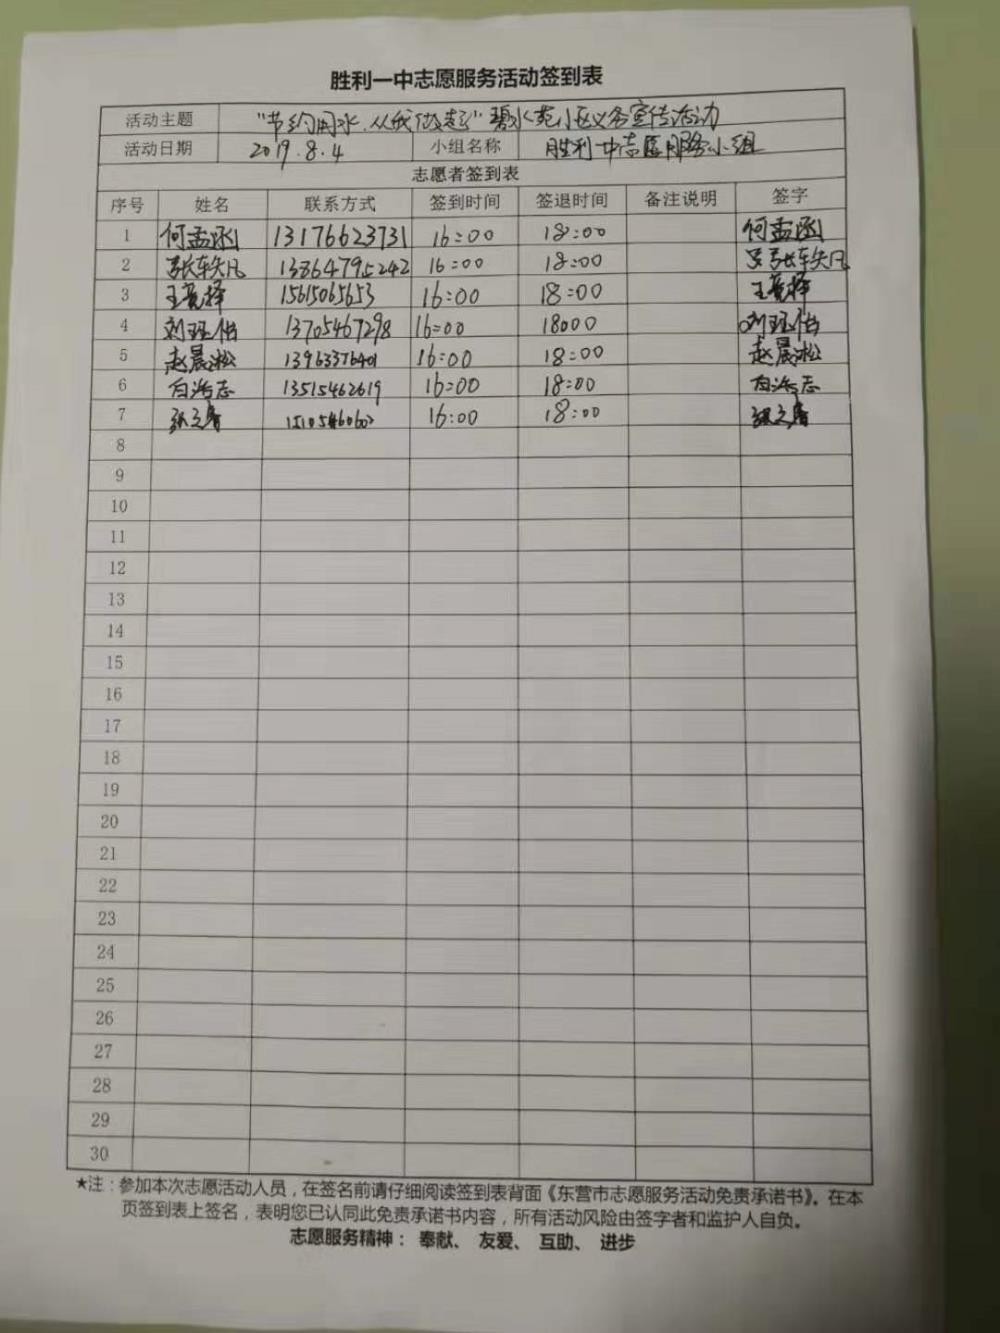 胜利一中志愿服务活动签到表
活动主题 "节约用水，从我做起"碧水苑小区义务宣传活动
活动日期 2019.8.4 小组名称 胜利一中志愿服务小组
志愿者签到表
序号 姓名 联系方式 签到时间 签退时间 备注说明 签字
1 何孟函 13176623731 16:00 18:00 何孟函
2 张轶凡 13864795242 16:00 18:00 张轶凡
3 王竟择 15615065653 16:00 18:00 王竟择
4 刘珏怡 13705467298 16:00 18:00 刘珏怡
5 赵晨淞 13963376401 16:00 18:00 赵晨淞
6 白浩志 13515462619 16:00 18:00 白浩志
7 16:00 18:00
8
9
10
11
12
13
14
15
16
17
18
19
20
21
22
23
24
25
26
27
28
29
30
★注：参加本次志愿活动人员，在签名前请仔细阅读签到表背面《东营市志愿服务活动免责承诺书》。在本
页签到表上签名，表明您已认同此免责承诺书内容，所有活动风险由签字者和监护人自负。
志愿服务精神： 奉献、 友爱、 互助、 进步